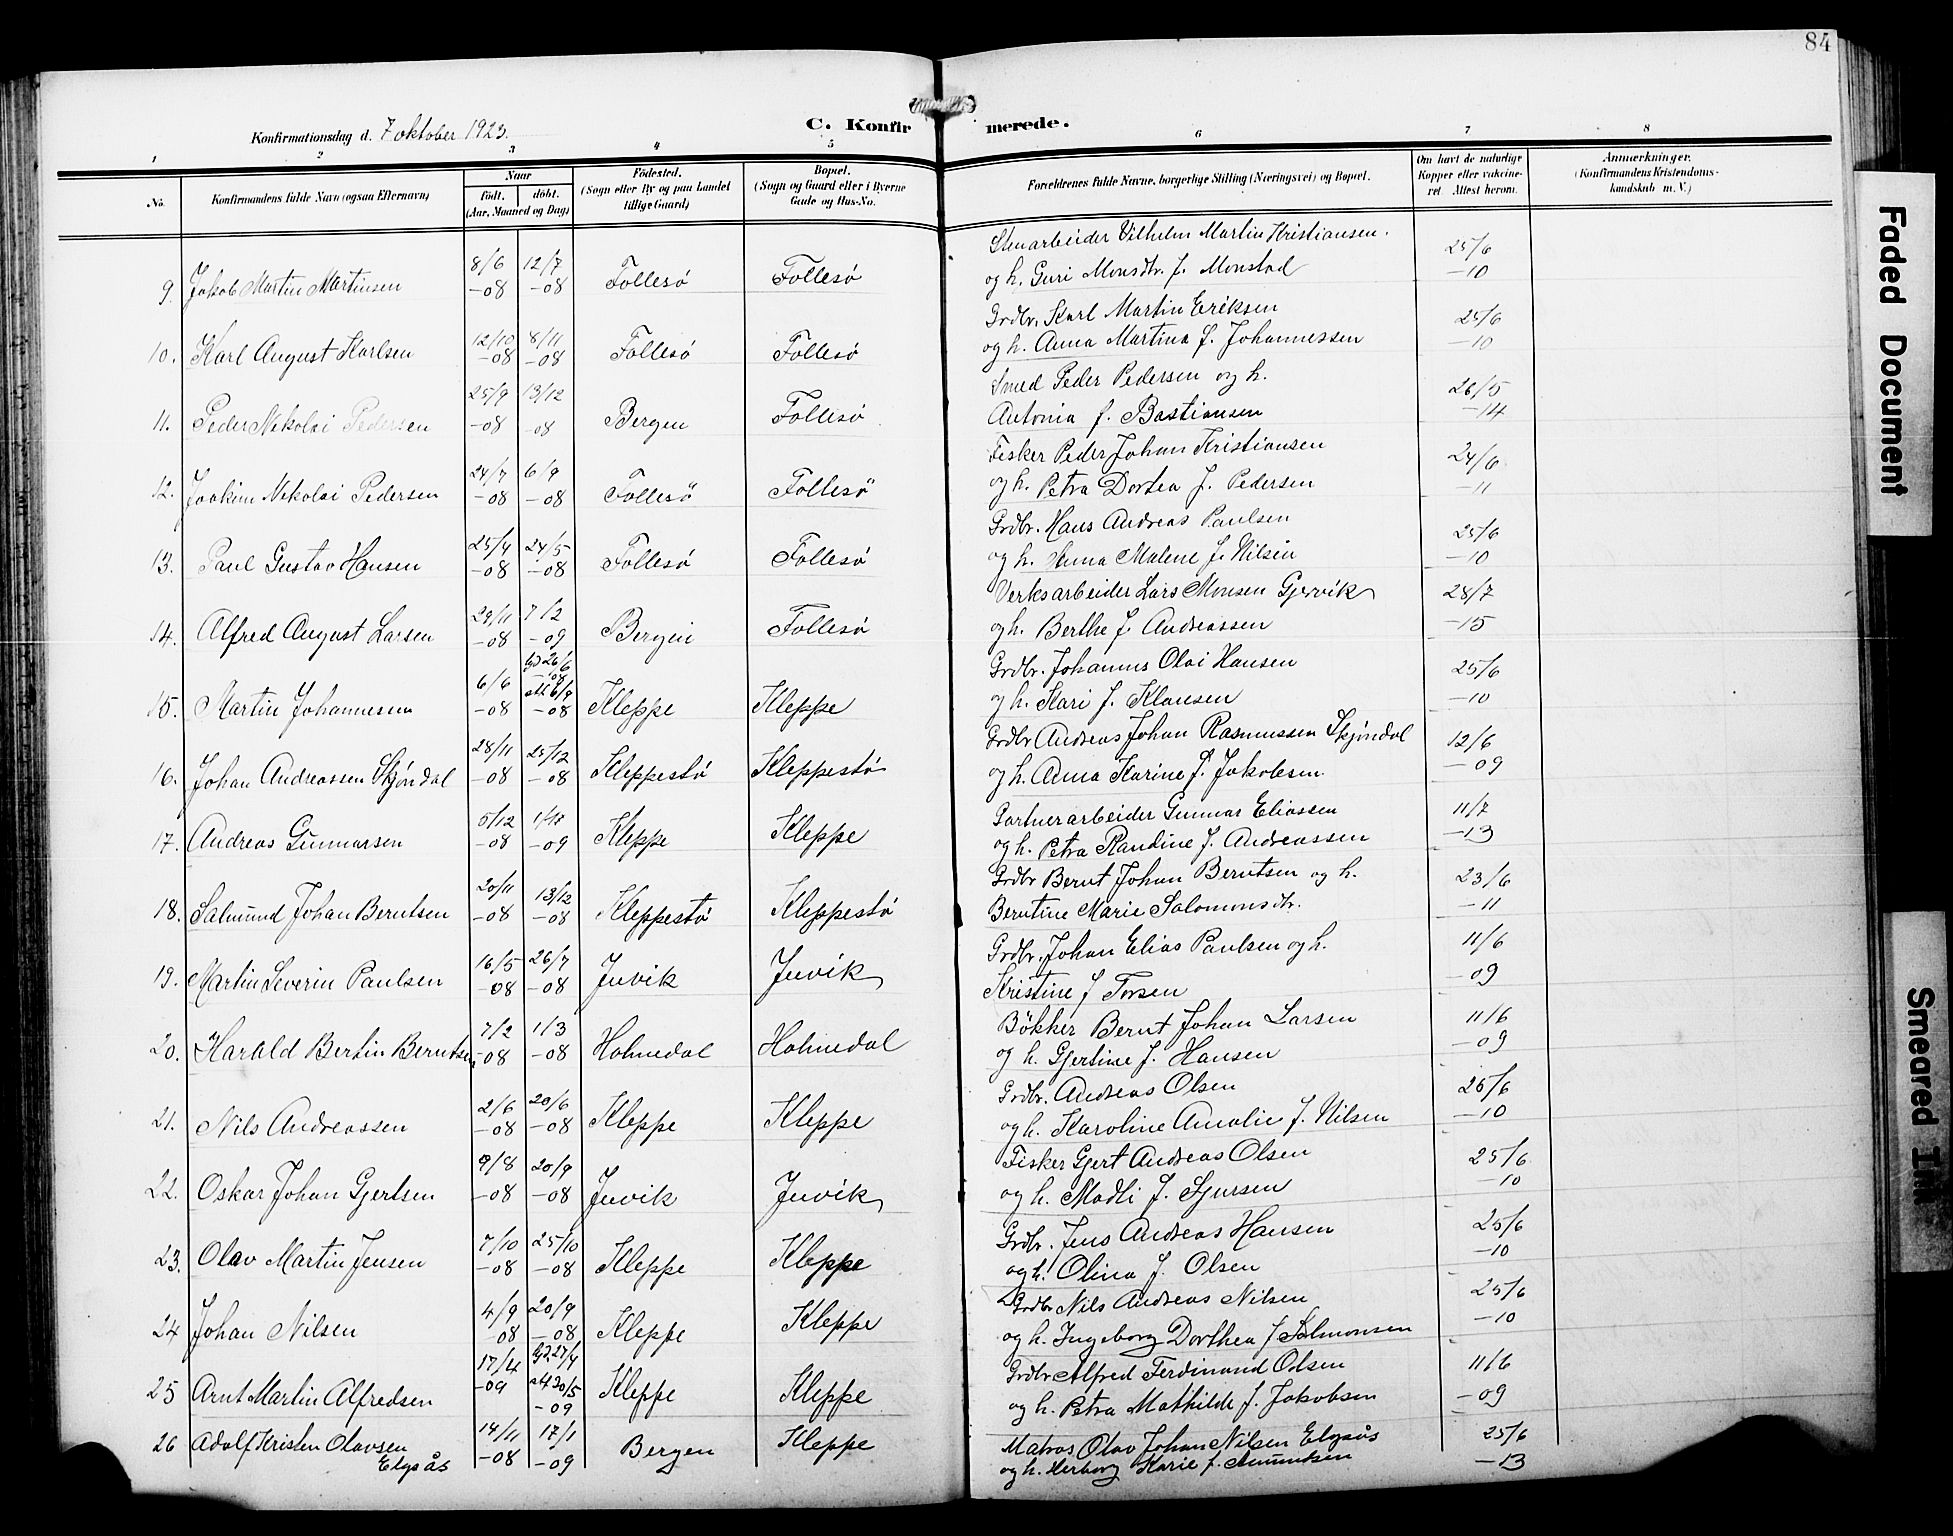 84
Konfirmationsdag d. 7 oktober 1923.
C. Konfirmerede.
1 2 3 4 5 6 7 8
No.
Konfirmandens fulde Navn (ogsaa Efternavn)
Naar
födt. döbt.
(Aar, Maaned og Dag)
Födested.
(Sogn eller By og paa Landet
tillige Gaard)
Bopæl.
(Sogn og Gaard eller i Byerne
Gade og Hus-No.
Forældrenes fulde Navne, borgerlige Stilling (Næringsvei) og Bopæl.
Om havt de naturlige
Kopper eller vakcine-
ret Attest herom.
Anmærkninger.
(Konfirmandens Kristendoms-
kundskab m. V.)
9. Jakob Martin Martinsen 8/6 -08 12/7 -08 Follesø Follesø
Stenarbeider Vilhelm Martin Kristiansen.
og h. Guri Monsdtr. f. Monstad 25/6 -10
10. Karl August Karlsen 12/10 -08 8/11 -08 Follesø Follesø
Grdbr. Karl Martin Eriksen
og h. Anna Martina f. Johannessen 25/6 -10
11. Peder Nikolai Pedersen 25/9 -08 13/12 -08 Bergen Follesø
Smed Peder Pedersen og h.
Antonia f. Bastiansen 26/5 -14
12. Joakim Nikolai Pedersen 24/7 -08 6/9 -08 Follesö Follesö
Fisker Peder Johan Kristiansen
og h. Petra Dortea f. Pedersen 24/6 -11
13. Paul Gustav Hansen 25/4 -08 24/5 -08 Follesø Follesø
Grdbr. Hans Andreas Paulsen
og h. Anna Malene f. Nilsen 25/6 -10
14. Alfred August Larsen 29/11 -08 7/2 -09 Bergen Follesø
Verksarbeider Lars Monsen Gjervik
og h. Berthe f. Andreassen 28/7 -15
15. Martin Johannesen 6/6 -08 hjd 26/6 -08 att 6/9 -08 Kleppe Kleppe
Grdbr. Johannes Olai Hansen
og h. Kari f. Klausen 25/6 -10
16. Johan Andreassen Skjøndal 28/11 -08 25/12 -08 Kleppestø Kleppestø
Grdbr Andreas Johan Rasmussen Skjøndal
og h. Anna Karine f. Jakobsen 12/6 -09
17. Andreas Gunnarsen 5/12 -08 -09 Kleppe Kleppe
Gartnerarbeider Gunnar Eliassen
og h. Petra Randine f. Andreassen 11/7 -13
18. Salmund Johan Berntsen 20/11 -08 13/12 -08 Kleppestø Kleppestø
Grdbr Bernt Johan Berntsen og h.
Berntine Marie Salomonsdtr. 23/6 -11
19. Martin Severin Paulsen 16/5 -08 26/7 -08 Juvik Juvik
Grdbr. Johan Elias Paulsen og h.
Kristine f Torsen 11/6 -09
20. Harald Bertin Berntsen 7/2 -08 1/3 -08 Holmedal Holmedal
Bökker Bernt Johan Larsen
og h. Gjertine f. Hansen 11/6 -09
21. Nils Andreassen 2/6 -08 20/6 -08 Kleppe Kleppe
Grdbr. Andreas Olsen
og h. Karoline Amalie f. Nilsen 25/6 -10
22. Oskar Johan Gjertsen 9/8 -08 20/9 -08 Juvik Juvik
Fisker Gjert Andreas Olsen
og h. Madli f. Sjursen 25/6 -10
23. Olav Martin Jensen 7/10 -08 25/10 -08 Kleppe Kleppe
Grdbr. Jens Andreas Hansen
og h. Olina f. Olsen 25/6 -10
24 Johan Nilsen 4/9 -08 20/9 -08 Kleppe Kleppe
Grdbr Nils Andreas Nilsen
og h. Ingeborg Dorthea f Salmonsen 25/6 -10
25 Arnt Martin Alfredsen 17/4 -09 hjd. 27/4 att 30/5 -09 Kleppe Kleppe
Grdbr Alfred Ferdinand Olsen
og h. Petra Mathilde f. Jakobsen 11/6 -09
26 Adolf Kristen Olavsen
Elgsås 14/11 -08 17/1 -09 Bergen Kleppe
Matros Olav Johan Nilsen Elgsås
og h. Herborg Karie f. Amundsen 25/6 -13
Faded Document
Smeared Ink